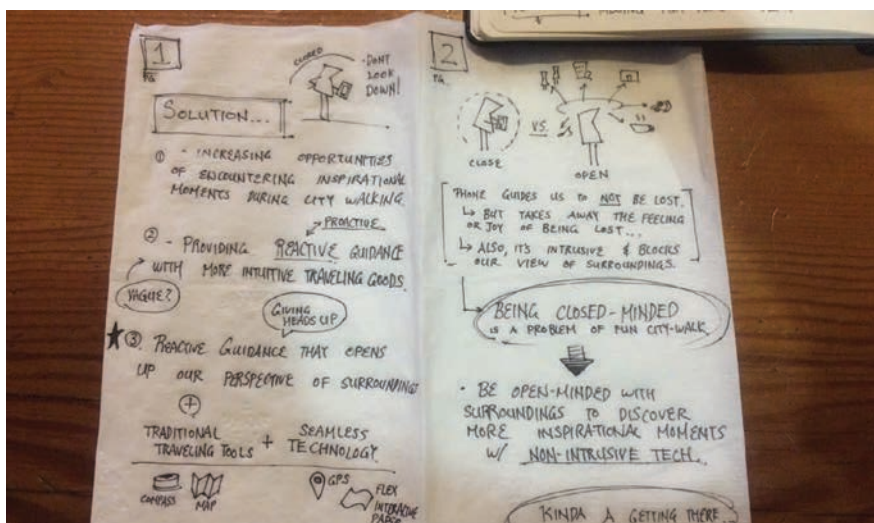 1
PG
CLOSED
- DONT
LOOK
DOWN!
SOLUTION...
① - INCREASING OPPORTUNITIES
OF ENCOUNTERING INSPIRATIONAL
MOMENTS DURING CITY WALKING.
PROACTIVE
② - PROVIDING REACTIVE GUIDANCE
WITH MORE INTUITIVE TRAVELING GOODS.
VAGUE?
GIVING
HEADS UP
★ ③. REACTIVE GUIDANCE THAT OPENS
UP OUR PERSPECTIVE OF SURROUNDINGS
+
TRADITIONAL
TRAVELING TOOLS + SEAMLESS
TECHNOLOGY.
COMPASS
MAP
GPS
FLEX
INTERACTIVE
PAPER
2
PG.
CLOSE
VS.
OPEN
PHONE GUIDES US TO NOT BE LOST.
↳ BUT TAKES AWAY THE FEELING
OR JOY OF BEING LOST...
↳ ALSO, IT'S INTRUSIVE & BLOCKS
OUR VIEW OF SURROUNDINGS.
BEING CLOSED-MINDED
IS A PROBLEM OF FUN CITY-WALK.
• BE OPEN-MINDED WITH
SURROUNDINGS TO DISCOVER
MORE INSPIRATIONAL MOMENTS
W/ NON-INTRUSIVE TECH.
KINDA A GETTING THERE